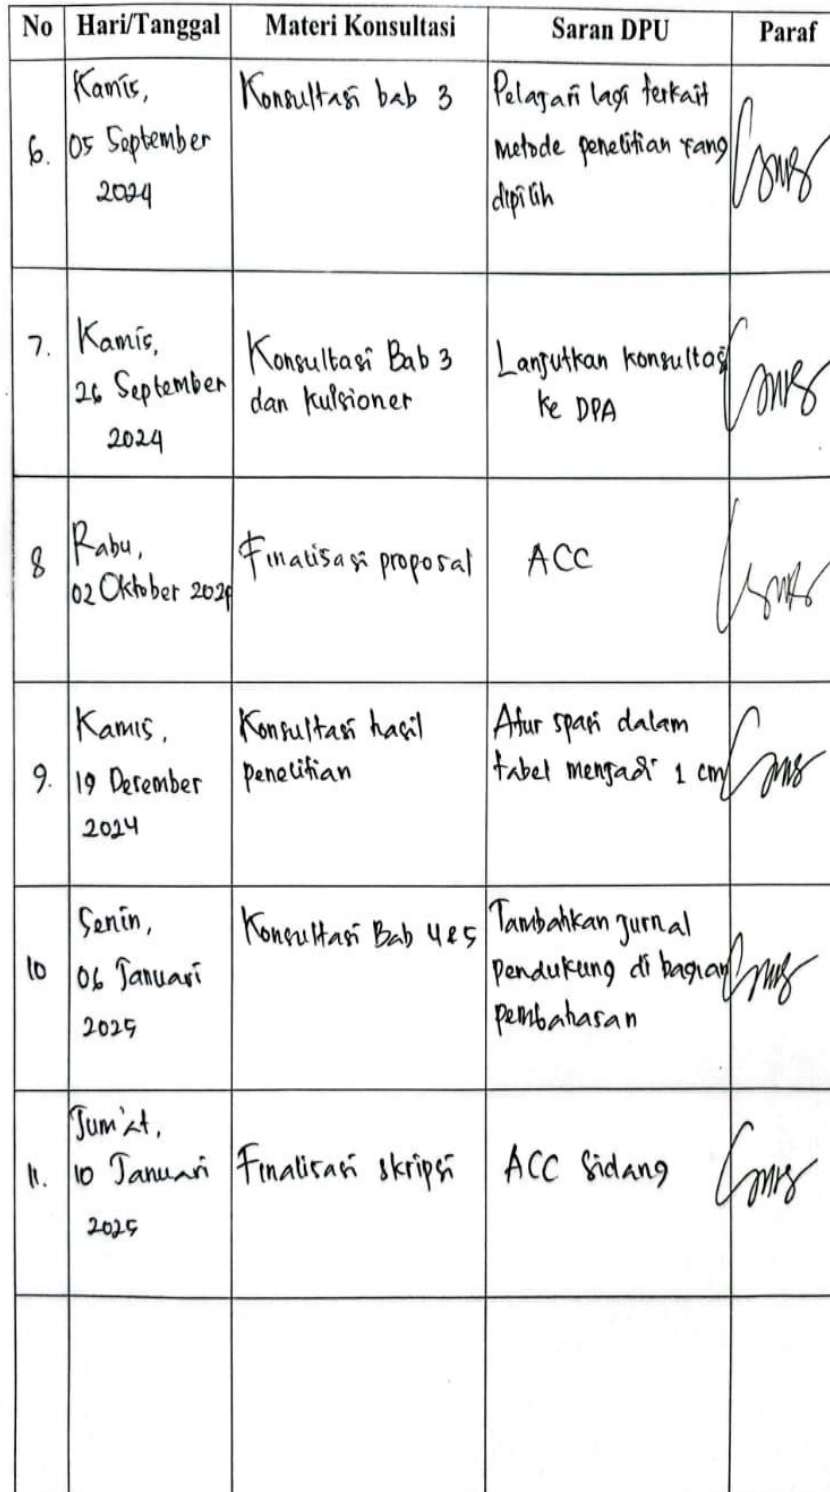 No Hari/Tanggal Materi Konsultasi Saran DPU Paraf
6. Kamis, 05 September 2024
Konsultasi bab 3
Pelajari lagi terkait
metode penelitian yang
dipilih
7. Kamis,
26 September
2024
Konsultasi Bab 3
dan kulsioner
Lanjutkan konsultasi
ke DPA
8 Rabu,
02 Oktober 2024
Finalisasi proposal
ACC
9. Kamis,
19 Desember
2024
Konsultasi hasil
penelitian
Atur spasi dalam
tabel menjadi 1 cm
10 Senin,
06 Januari
2025
Konsultasi Bab 4&5
Tambahkan jurnal
pendukung di bagian
pembahasan
11. Jum'at,
10 Januari
2025
Finalisasi skripsi
ACC Sidang